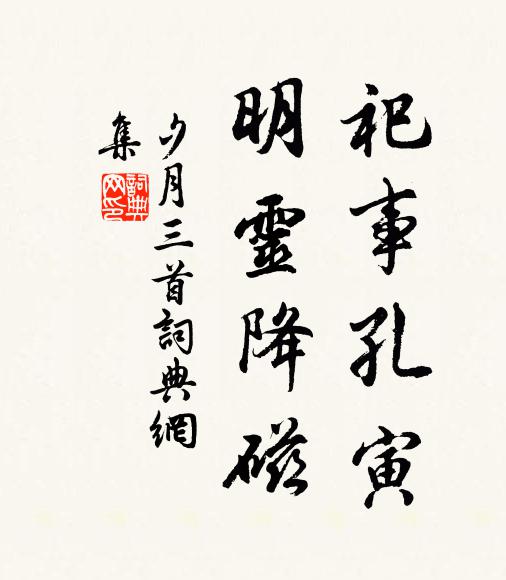 祀事孔寅
明靈降磁
夕月三首詞典網
集
詞典网印